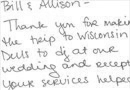 Bill & Allison-
Thank you for making
the trip to Wisconsin
Dells to dj at our
wedding and recept
your services helped